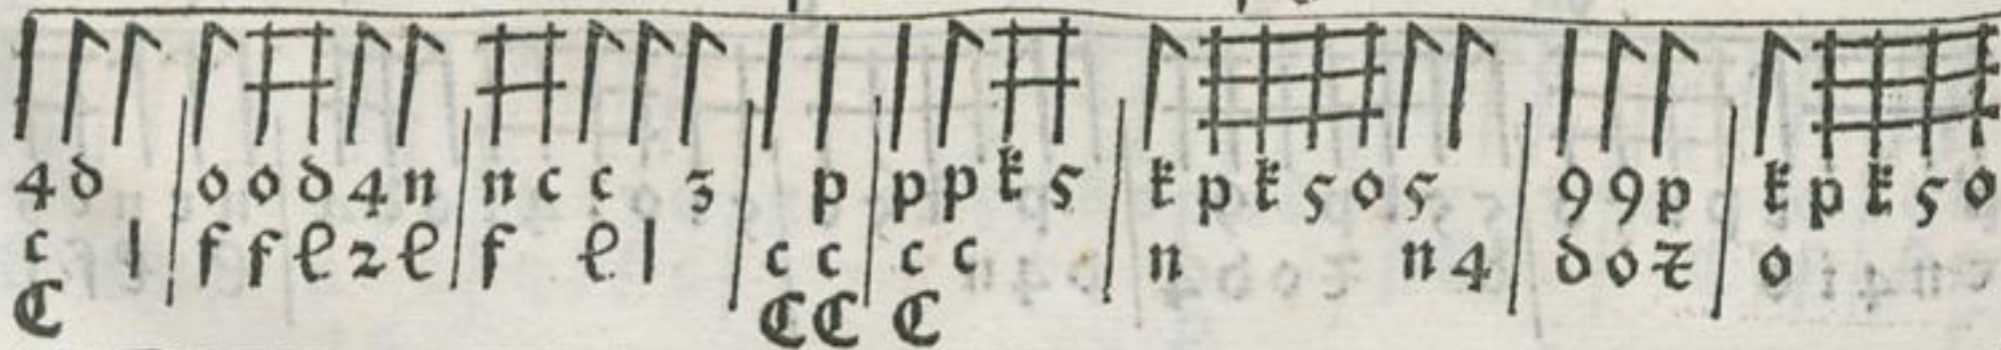 4 d | o o d 4 n | n c c 3 | p | p p k 5 | k p k 5 o 5 | 9 9 p | k p k 5 o
c l | f f e 2 e | f e l | c c | c c | n n 4 | d o z | o
C | C C | C